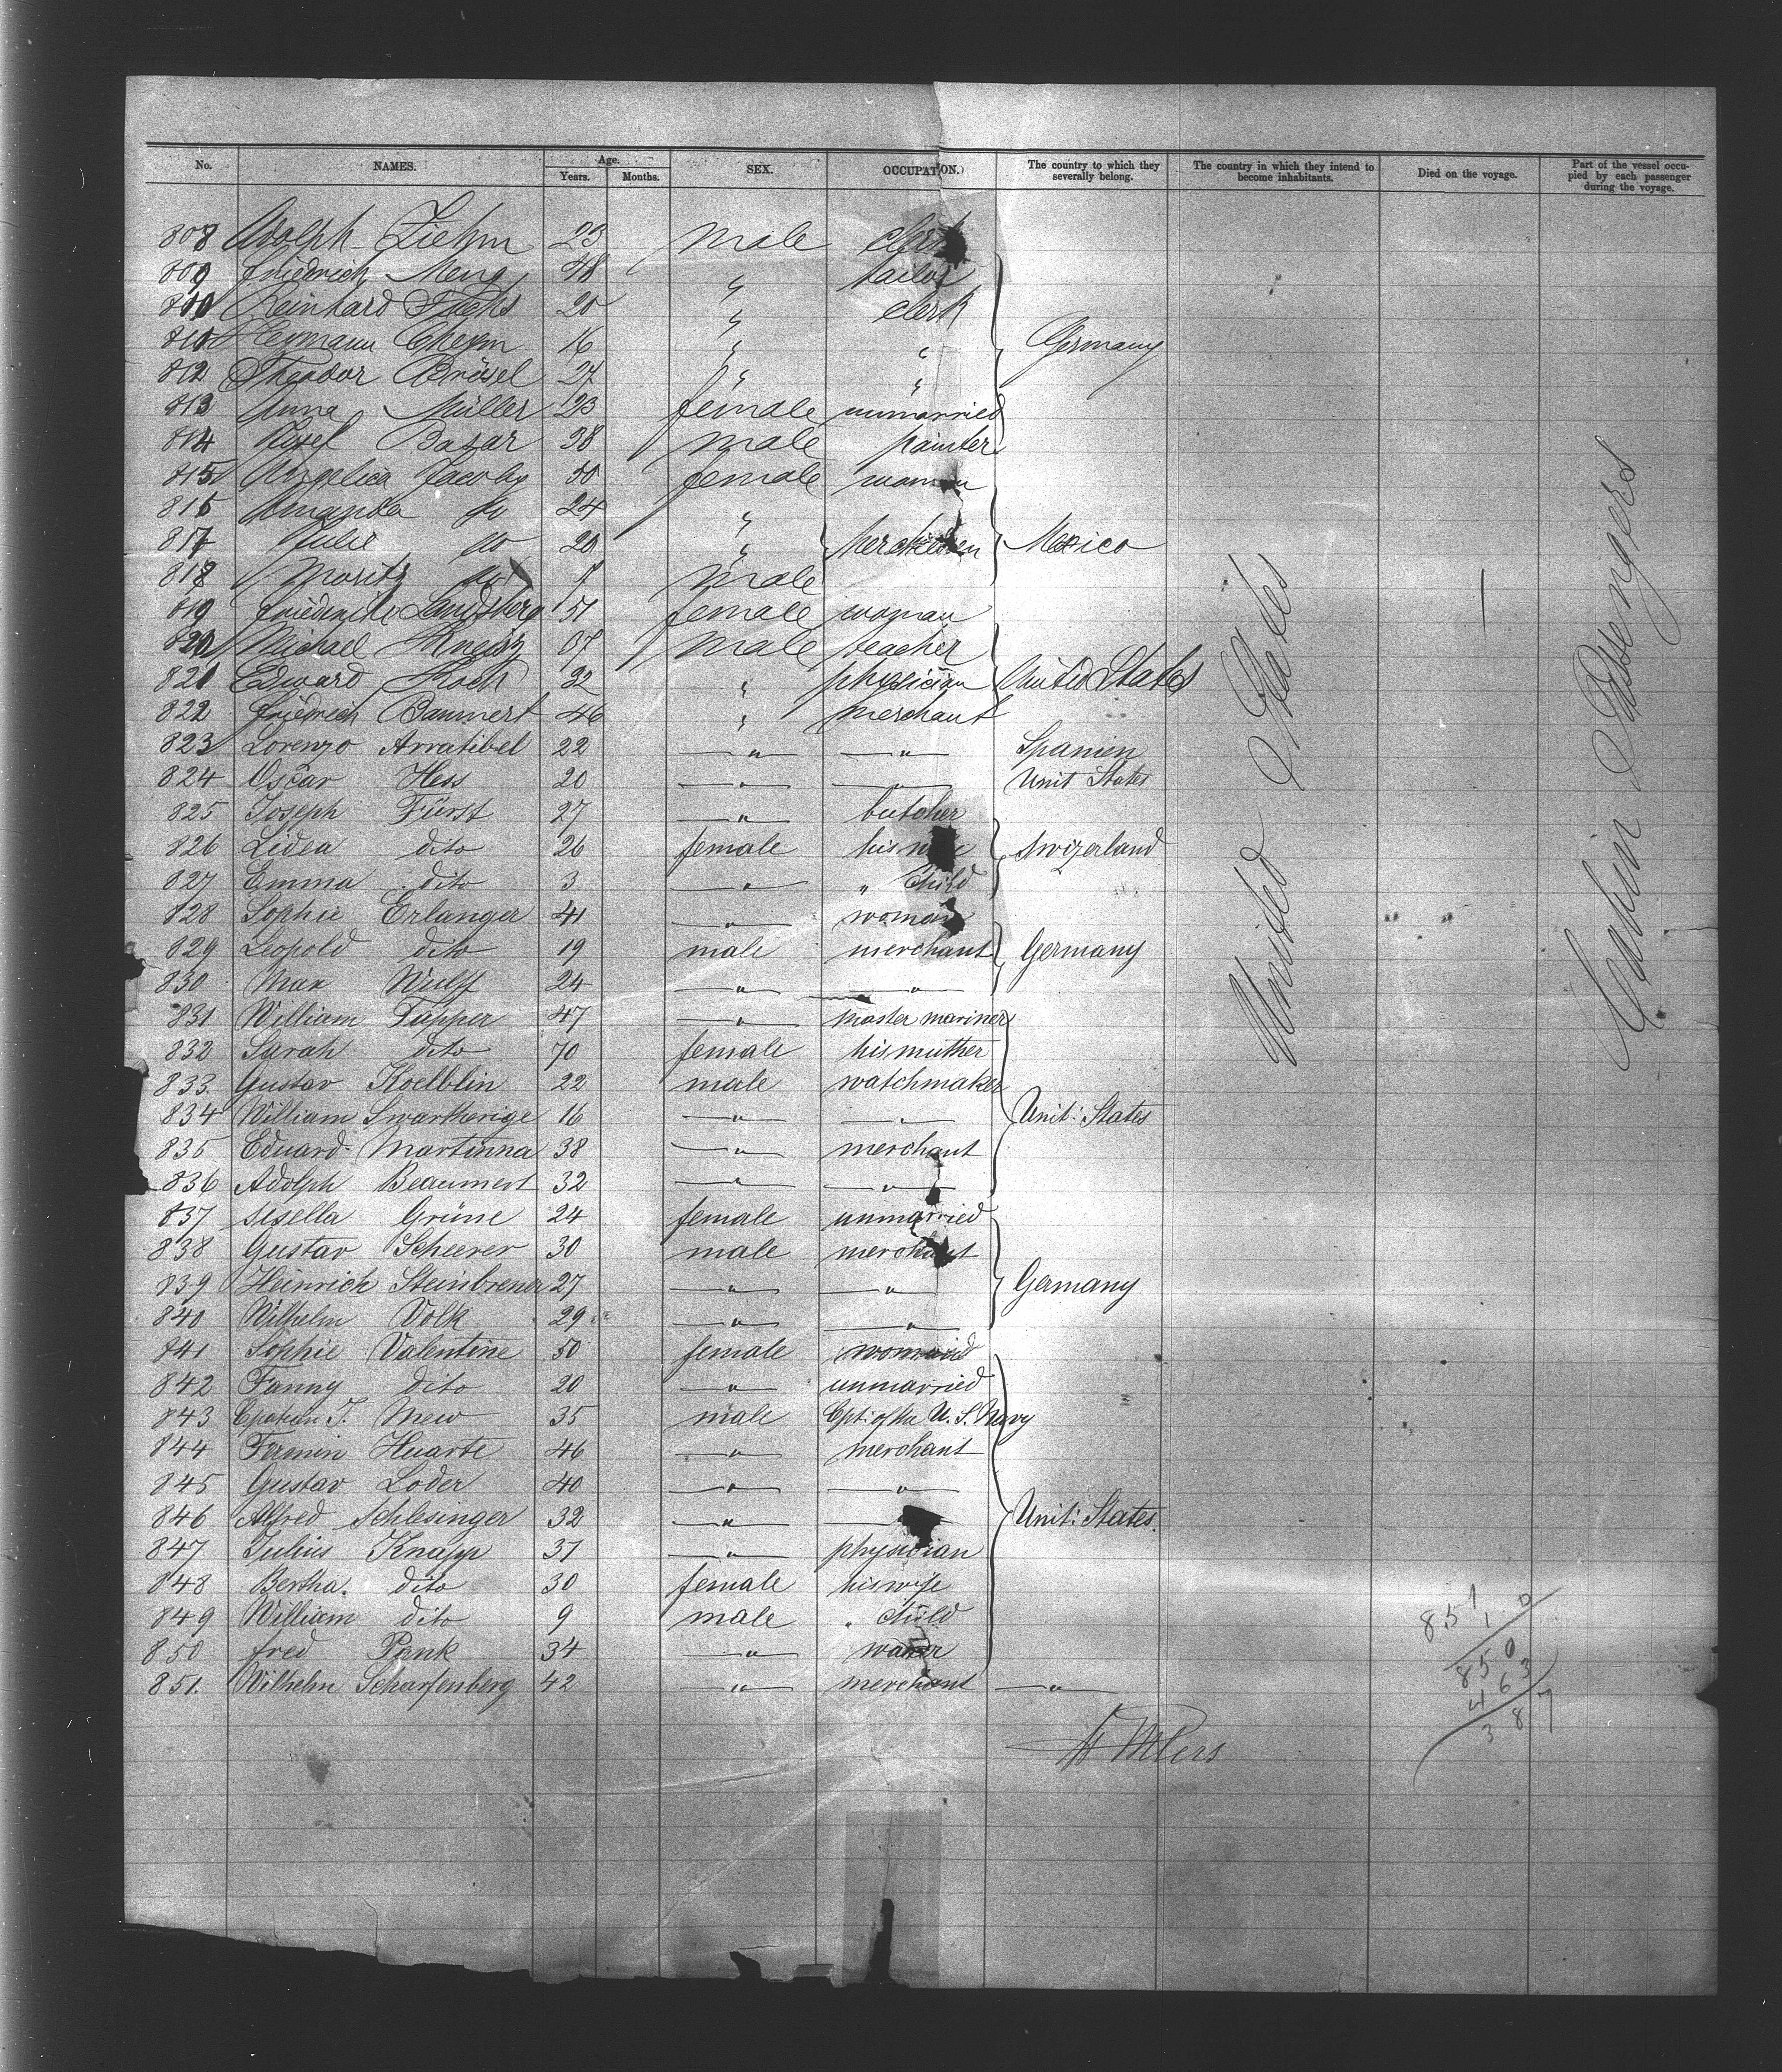 No. NAMES. Age. Years. Months. SEX. OCCUPATION. The country to which they severally belong. The country in which they intend to become inhabitants. Died on the voyage. Part of the vessel occupied by each passenger during the voyage.
808 Adolph Ziehm 23 male clerk
809 Friedrich Meng 48 " tailor
810 Reinhard Fuchs 20 " clerk
Heymann 16 " " Germany
812 Theodor Brösel 27 " "
813 Anna Müller 23 female unmarried
814 Bazar 38 male painter
815 Angelica Jacoby 50 female woman
816 Amanda do 24 "
817 Julie do 20 " her children Mexico
818 Moritz do 7 male
819 Friederike Landsberg 51 female woman
820 Michael 67 male teacher
821 Edward Koch 32 " physician United States
822 Friedrich Baumert 46 " merchant
823 Lorenzo Arratibel 22 " " Spanien
824 Oscar Hess 20 " " Unit States
825 Joseph Fürst 27 " butcher
826 Lidea dito 26 female his Swizerland
827 Emma dito 3 " " child
828 Sophie Erlanger 41 " woman
829 Leopold dito 19 male merchant Germany
830 Max Wulff 24 " "
831 William Tapper 47 " master mariner
832 Sarah dito 70 female his muther
833 Gustav Koelblin 22 male watchmaker
834 William Swartherige 16 " " Unit: States
835 Eduard Martinna 38 " merchant
836 Adolph Beaumert 32 " "
837 Sisella Grüne 24 female unmarried
838 Gustav Scheerer 30 male merchant
839 Heinrich Steinbrener 27 " " Germany
840 Wilhelm Volk 29 " "
841 Sophie Valentine 50 female
842 Fanny dito 20 " unmarried
843 T. Mew 35 male Cpt: of the U. S. Navy
844 Fermin Huarte 46 " merchant
845 Gustav Loder 40 " "
846 Alfred Schlesinger 32 " Unit: States.
847 Julius Knapp 37 " physician
848 Bertha. dito 30 female his wife
849 William dito 9 male " child
850 fred Pank 34 "
851. Wilhelm Scharfenberg 42 " merchant "
United States
Cabin Passengers
851
10
850
463
387